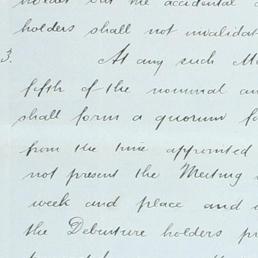 holder but the accidental
holders shall not invalidat
3. At any such Me
fifth of the nominal am
shall form a quorum fo
from the time appointed
not present the Meeting
week and place and
the Debenture holders pr